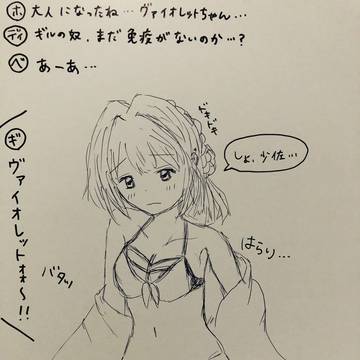 ホ 大人になったね…ヴァイオレットちゃん…
ディ ギルの奴、まだ免疫がないのか…?
ベ あーあ…
ギ ヴァイオレットォォ〜!!
ドキドキ
しょ、少佐…
はらり…
バタッ